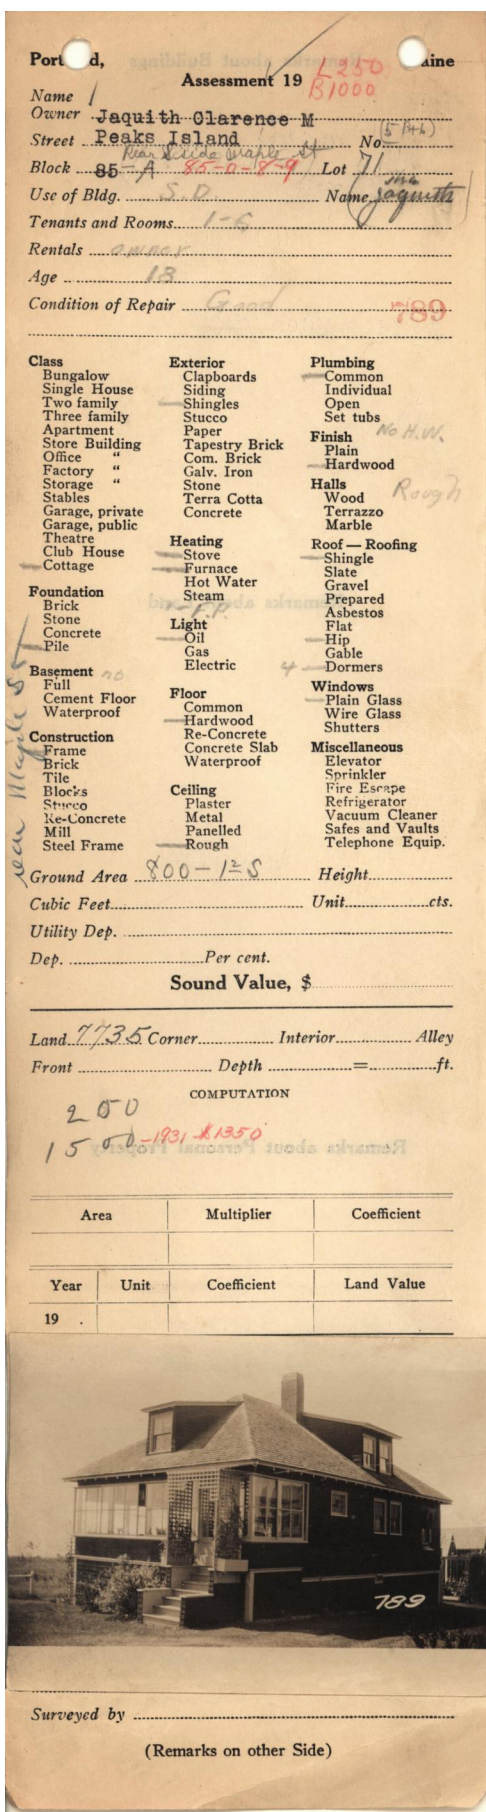 Port d, aine
Assessment 19
L250
B1000
Name
Owner Jaquith Clarence M
Street Peaks Island No.
Rear S side Maple St
Block 85-A 85-O-8-9 Lot 71
Use of Bldg. S.D. Name Jaquith
Tenants and Rooms 1-6
Rentals owner
Age 18
Condition of Repair Good
789
Class
Bungalow
Single House
Two family
Three family
Apartment
Store Building
Office "
Factory "
Storage "
Stables
Garage, private
Garage, public
Theatre
Club House
Cottage
Foundation
Brick
Stone
Concrete
Pile
Basement no
Full
Cement Floor
Waterproof
Construction
Frame
Brick
Tile
Blocks
Stucco
Re-Concrete
Mill
Steel Frame
rear Maple St
Exterior
Clapboards
Siding
Shingles
Stucco
Paper
Tapestry Brick
Com. Brick
Galv. Iron
Stone
Terra Cotta
Concrete
Heating
Stove
Furnace
Hot Water
Steam
F.P.
Light
Oil
Gas
Electric
Floor
Common
Hardwood
Re-Concrete
Concrete Slab
Waterproof
Ceiling
Plaster
Metal
Panelled
Rough
Plumbing
Common
Individual
Open
Set tubs
Finish No H.W.
Plain
Hardwood
Halls
Wood Rough
Terrazzo
Marble
Roof — Roofing
Shingle
Slate
Gravel
Prepared
Asbestos
Flat
Hip
Gable
4 Dormers
Windows
Plain Glass
Wire Glass
Shutters
Miscellaneous
Elevator
Sprinkler
Fire Escape
Refrigerator
Vacuum Cleaner
Safes and Vaults
Telephone Equip.
Ground Area 800 - 1½ S Height
Cubic Feet Unit cts.
Utility Dep.
Dep. Per cent.
Sound Value, $
Land 7735 Corner Interior Alley
Front Depth = ft.
COMPUTATION
250
1500 -1931 $1350
Area Multiplier Coefficient
Year Unit Coefficient Land Value
19 .
789
Surveyed by
(Remarks on other Side)